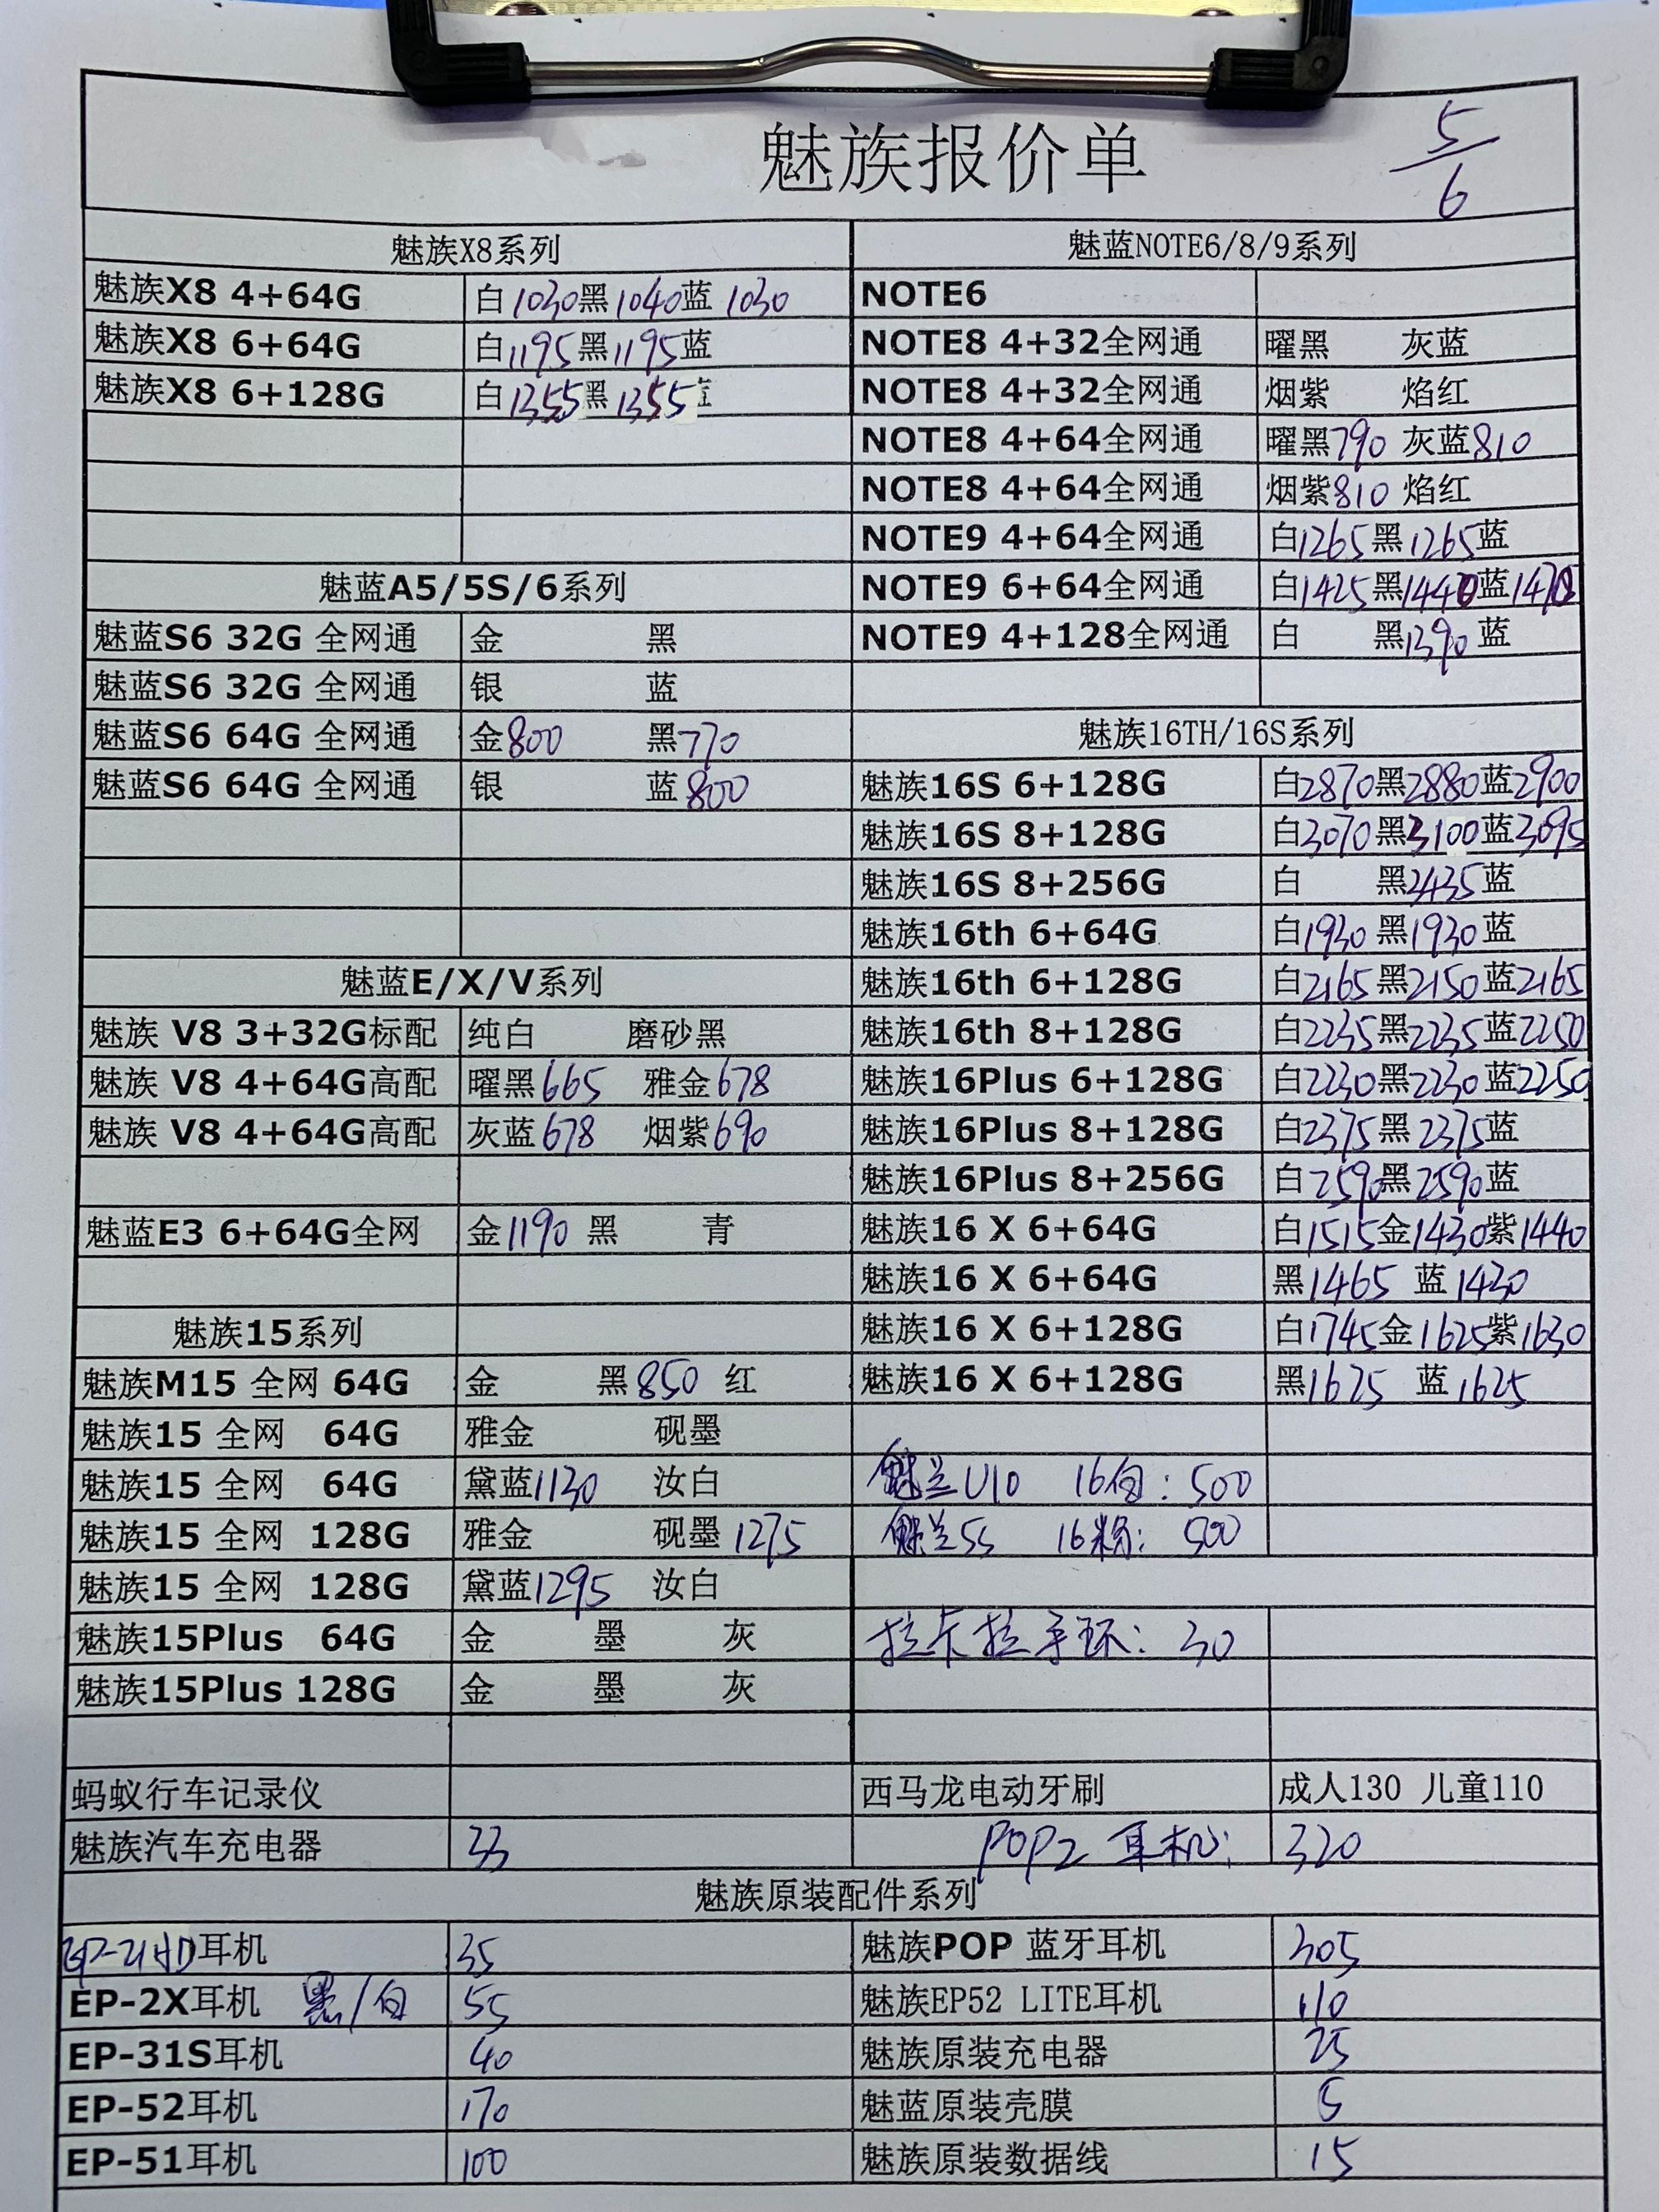 魅族报价单
5/6
魅族X8系列
魅族X8 4+64G 白1030黑1040蓝1030
魅族X8 6+64G 白1195黑1195蓝
魅族X8 6+128G 白1355黑1355
魅蓝A5/5S/6系列
魅蓝S6 32G 全网通 金 黑
魅蓝S6 32G 全网通 银 蓝
魅蓝S6 64G 全网通 金800 黑770
魅蓝S6 64G 全网通 银 蓝800
魅蓝E/X/V系列
魅族 V8 3+32G标配 纯白 磨砂黑
魅族 V8 4+64G高配 曜黑665 雅金678
魅族 V8 4+64G高配 灰蓝678 烟紫690
魅蓝E3 6+64G全网 金1190 黑 青
魅族15系列
魅族M15 全网 64G 金 黑850 红
魅族15 全网 64G 雅金 砚墨
魅族15 全网 64G 黛蓝1130 汝白
魅族15 全网 128G 雅金 砚墨1275
魅族15 全网 128G 黛蓝1295 汝白
魅族15Plus 64G 金 墨 灰
魅族15Plus 128G 金 墨 灰
魅蓝NOTE6/8/9系列
NOTE6
NOTE8 4+32全网通 曜黑 灰蓝
NOTE8 4+32全网通 烟紫 焰红
NOTE8 4+64全网通 曜黑790 灰蓝810
NOTE8 4+64全网通 烟紫810 焰红
NOTE9 4+64全网通 白1265黑1265蓝
NOTE9 6+64全网通 白1425黑1440蓝
NOTE9 4+128全网通 白 黑1390蓝
魅族16TH/16S系列
魅族16S 6+128G 白2870黑2880蓝2900
魅族16S 8+128G 白3070黑3100蓝3095
魅族16S 8+256G 白 黑2435蓝
魅族16th 6+64G 白1930黑1930蓝
魅族16th 6+128G 白2165黑2150蓝2165
魅族16th 8+128G 白2235黑2235蓝2250
魅族16Plus 6+128G 白2230黑2230蓝2250
魅族16Plus 8+128G 白2375黑2375蓝
魅族16Plus 8+256G 白2590黑2590蓝
魅族16 X 6+64G 白1515金1430紫1440
魅族16 X 6+64G 黑1465 蓝1430
魅族16 X 6+128G 白1745金1625紫1630
魅族16 X 6+128G 黑1625 蓝1625
魅兰U10 16白: 500
魅兰5S 16粉: 500
拉卡拉手环: 30
蚂蚁行车记录仪
西马龙电动牙刷 成人130 儿童110
魅族汽车充电器 33
POP2 耳机: 320
魅族原装配件系列
EP-21HD耳机 35
魅族POP 蓝牙耳机 305
EP-2X耳机 黑/白 55
魅族EP52 LITE耳机 110
EP-31S耳机 40
魅族原装充电器 25
EP-52耳机 170
魅蓝原装壳膜 5
EP-51耳机 100
魅族原装数据线 15